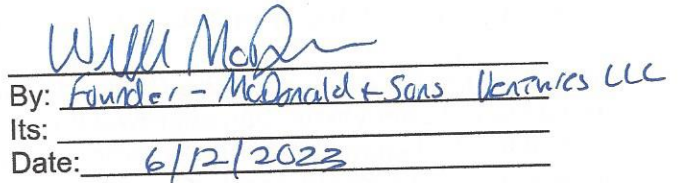 By: Founder - McDonald + Sons Ventures LLC
Its:
Date: 6/12/2023